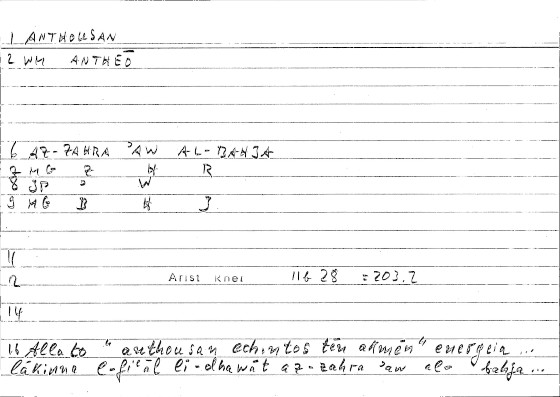 1 ANTHOUSAN
2 WH ANTHEŌ
6 AZ-ZAHRA ʾAW AL-BAHJA
7 HG Z H R
8 JP ʾ W
9 HG B H J
11
12 Arist Rhet 11b 28 =203.2
14
15 Alla to "anthousan echontos tēn akmēn" energeia ...
lākinna l-fiʿāl li-dhawāt az-zahra ʾaw al- bahja ...